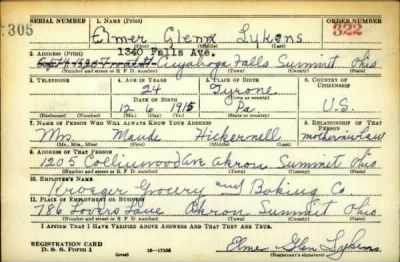 SERIAL NUMBER 1. NAME (Print) ORDER NUMBER
305 Elmer Glenn Lykens 322
1340 Falls Ave.
2. ADDRESS (Print)
Cuyahoga Falls Summit Ohio
(Number and street or R. F. D. number) (Town) (County) (State)
3. TELEPHONE 4. AGE IN YEARS 5. PLACE OF BIRTH 6. COUNTRY OF CITIZENSHIP
24 Tyrone
(Town or county)
DATE OF BIRTH
12 6 1915 Pa. U.S.
(Exchange) (Number) (Mo.) (Day) (Yr.) (State or country)
7. NAME OF PERSON WHO WILL ALWAYS KNOW YOUR ADDRESS 8. RELATIONSHIP OF THAT PERSON
Mrs. Maude Hickernell mother in law
(Mr., Mrs., Miss) (First) (Middle) (Last)
9. ADDRESS OF THAT PERSON
1205 Collinwood Ave Akron Summit Ohio
(Number and street or R. F. D. number) (Town) (County) (State)
10. EMPLOYER'S NAME
Kroeger Grocery and Baking Co.
11. PLACE OF EMPLOYMENT OR BUSINESS
786 Lovers Lane Akron Summit Ohio
(Number and street or R. F. D. number) (Town) (County) (State)
I AFFIRM THAT I HAVE VERIFIED ABOVE ANSWERS AND THAT THEY ARE TRUE.
REGISTRATION CARD
D. S. S. Form 1 (over) 16-17105
Elmer Glen Lykens
(Registrant's signature)